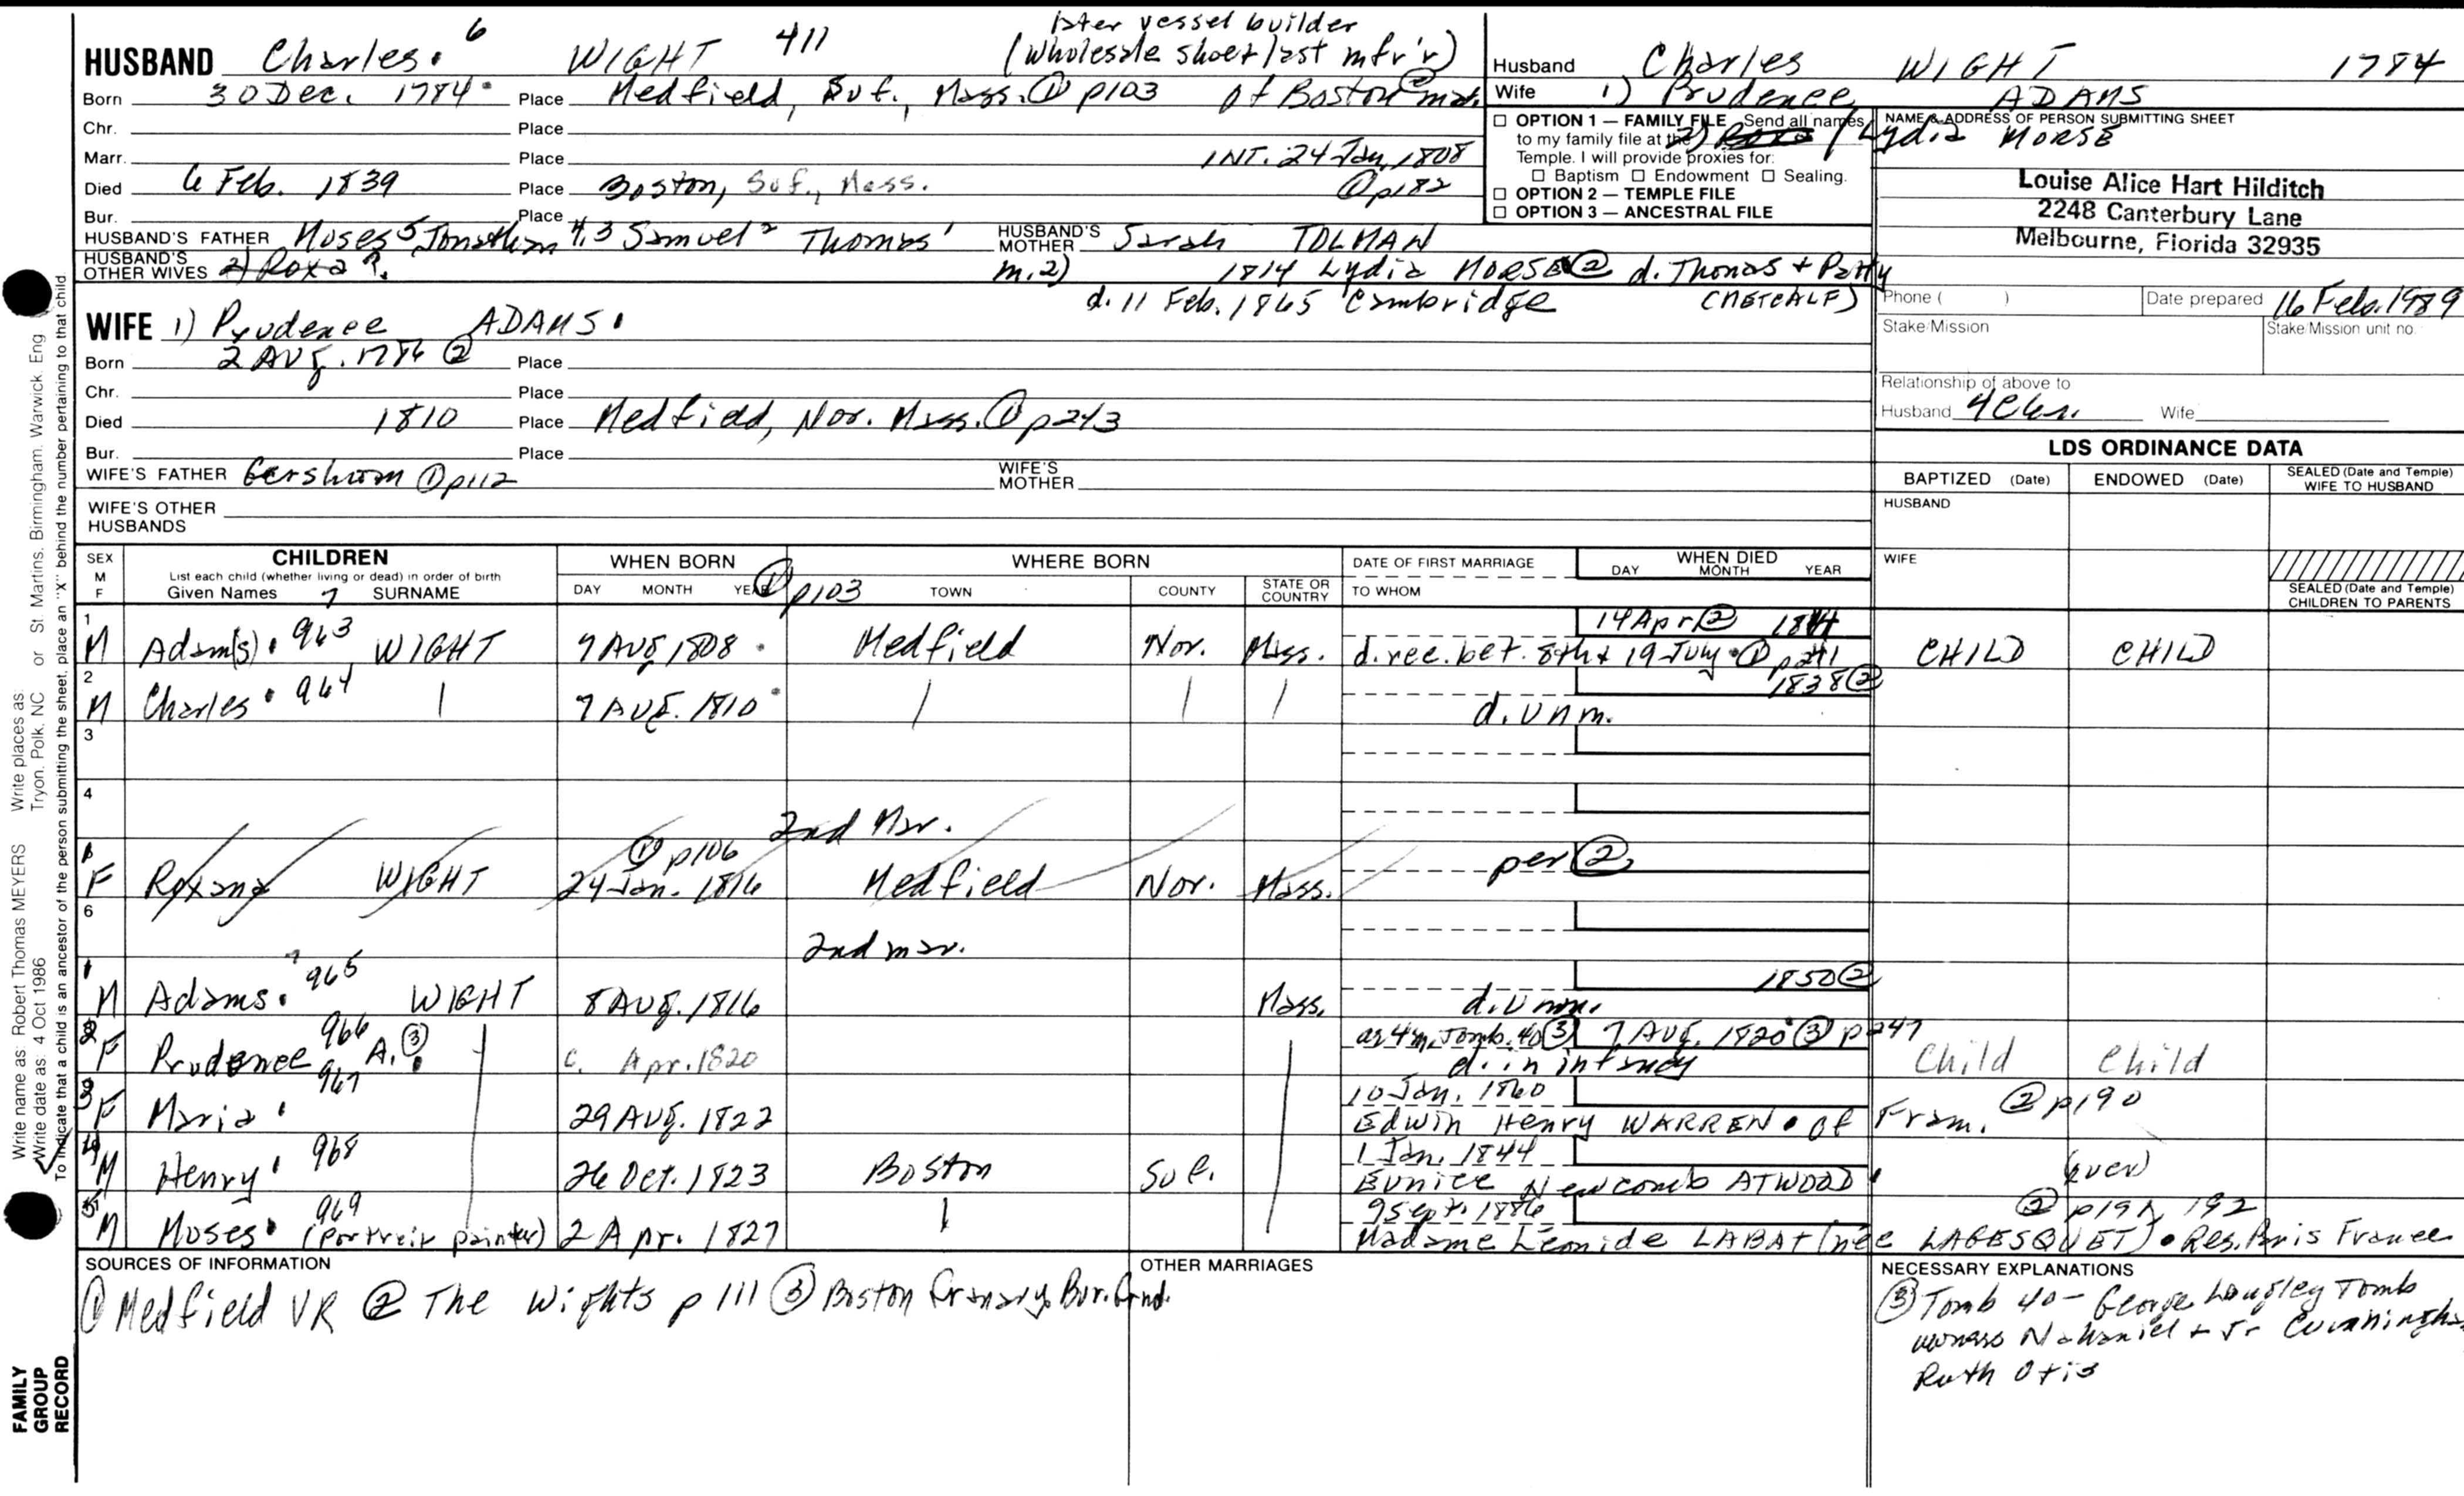 later vessel builder
HUSBAND Charles. 6 WIGHT 411 (wholesale shoe & last mfr'r)
Born 30 Dec. 1784 Place Medfield, Suf., Mass. ① p103 of Boston ② mar.
Chr. Place
Marr. Place INT. 24 Jan. 1808
Died 6 Feb. 1839 Place Boston, Suf., Mass. ① p182
Bur. Place
HUSBAND'S FATHER Moses 5 Jonathan 4,3 Samuel 2 Thomas 1 HUSBAND'S MOTHER Sarah TOLMAN
HUSBAND'S OTHER WIVES 2) Roxa ?. m. 2) 1814 Lydia MORSE ② d. Thomas + Patty
d. 11 Feb. 1865 Cambridge (METCALF)
WIFE 1) Prudence ADAMS.
Born 2 Aug. 1786 ② Place
Chr. Place
Died 1810 Place Medfield, Nor. Mass. ① p243
Bur. Place
WIFE'S FATHER Gershom ① p112 WIFE'S MOTHER
WIFE'S OTHER HUSBANDS
Husband Charles WIGHT 1784
Wife 1) Prudence ADAMS
2) Lydia MORSE
OPTION 1 — FAMILY FILE Send all names
to my family file at the
Temple. I will provide proxies for:
Baptism Endowment Sealing.
OPTION 2 — TEMPLE FILE
OPTION 3 — ANCESTRAL FILE
NAME & ADDRESS OF PERSON SUBMITTING SHEET
Louise Alice Hart Hilditch
2248 Canterbury Lane
Melbourne, Florida 32935
Phone ( ) Date prepared 16 Feb. 1989
Stake/Mission Stake/Mission unit no.
Relationship of above to
Husband 4C6r. Wife
LDS ORDINANCE DATA
BAPTIZED (Date) ENDOWED (Date) SEALED (Date and Temple) WIFE TO HUSBAND
HUSBAND
WIFE
SEALED (Date and Temple) CHILDREN TO PARENTS
SEX M F CHILDREN WHEN BORN WHERE BORN DATE OF FIRST MARRIAGE WHEN DIED
List each child (whether living or dead) in order of birth
Given Names 7 SURNAME DAY MONTH YEAR ① p103 TOWN COUNTY STATE OR COUNTRY TO WHOM DAY MONTH YEAR
14 Apr ② 1811
1 M Adam(s). 963 WIGHT 7 Aug 1808 Medfield Nor. Mass. d. rec. bet. 8th + 19 July ① p241 CHILD CHILD
1838 ②
2 M Charles 964 | 7 Aug. 1810 | | | d. unm.
3
4
2nd Mar.
① p106
F Roxana WIGHT 24 Jan. 1816 Medfield Nor. Mass. per ②
6
2nd mar.
1850 ②
1 M Adams. 7 965 WIGHT 8 Aug. 1816 Mass. d. unm.
ae 4 m. Tomb. 40 ③ 7 Aug. 1820 ③ p247
2 F Prudence 966 A. ③ c. Apr. 1820 d. in infancy Child Child
10 Jan. 1860
3 F Maria 967 29 Aug. 1822 Edwin Henry WARREN of Fram. ② p190
1 Jan. 1844
4 M Henry 968 26 Oct. 1823 Boston Suf. Eunice Newcomb ATWOOD (over)
9 Sept. 1886 ② p191, 192
5 M Moses 969 (portrait painter) 2 Apr. 1827 | Madame Leonide LABAT (née LAGESQUET). Res. Paris France
SOURCES OF INFORMATION
① Medfield VR ② The Wights p 111 ③ Boston Granary Bur. Grnd.
OTHER MARRIAGES
NECESSARY EXPLANATIONS
③ Tomb 40 - George Langley Tomb
Nathaniel + Jr
Ruth Otis
Write name as: Robert Thomas MEYERS Write places as: Tryon, Polk, NC or St. Martins, Birmingham, Warwick, Eng
Write date as: 4 Oct 1986
To indicate that a child is an ancestor of the person submitting the sheet, place an "X" behind the number pertaining to that child
FAMILY GROUP RECORD